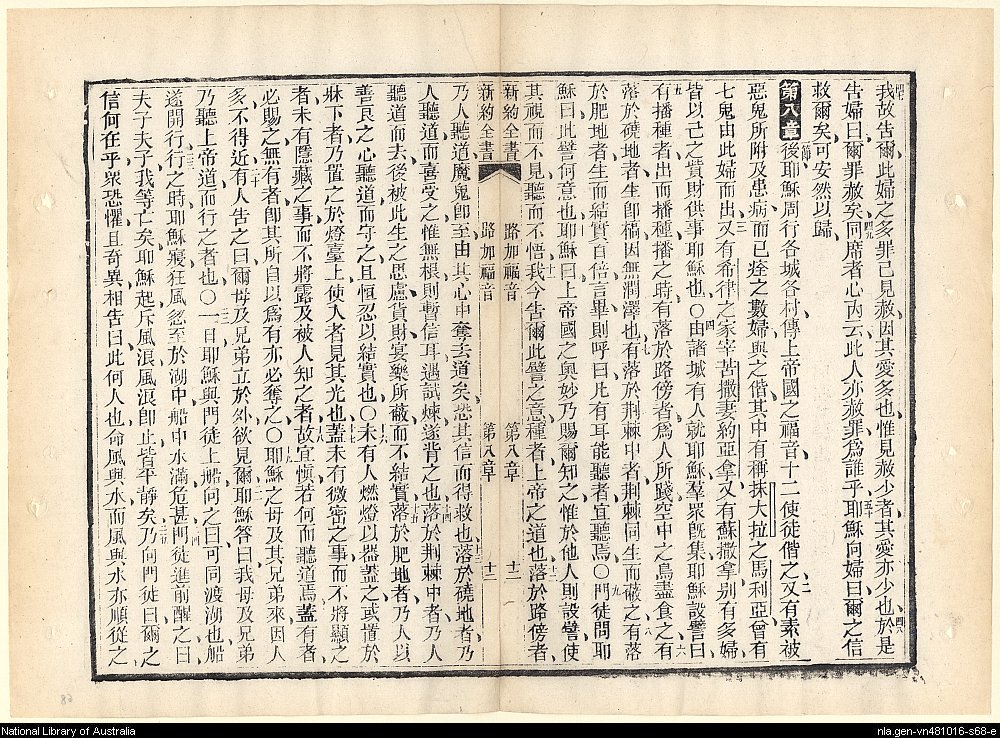 我故告爾此婦之多罪已見赦因其愛多也惟見赦少者其愛亦少也於是
告婦曰爾罪赦矣同席者心內云此人亦赦罪爲誰乎耶穌向婦曰爾之信
救爾矣可安然以歸
第八章 後耶穌周行各城各村傳上帝國之福音十二使徒偕之又有素被
惡鬼所附及患病而已痊之數婦與之偕其中有稱抹大拉之馬利亞曾有
七鬼由此婦而出又有希律之家宰苦撒妻約亞拿又有蘇撒拿别有多婦
皆以己之貲財供事耶穌也〇由諸城有人就耶穌羣眾旣集耶穌設譬曰
有播種者出而播種播之時有落於路傍者爲人所踐空中之鳥盡食之有
落於磽地者生卽槁因無潤澤也有落於荆棘中者荆棘同生而蔽之有落
於肥地者生而結實百倍言畢則呼曰凡有耳能聽者宜聽焉〇門徒問耶
穌曰此譬何意也耶穌曰上帝國之奧妙乃賜爾知之惟於他人則設譬使
其視而不見聽而不悟我今告爾此譬之意種者上帝之道也落於路傍者
新約全書 路加福音 第八章 十二
新約全書 路加福音 第八章 十二
乃人聽道魔鬼卽至由其心中奪去道矣恐其信而得救也落於磽地者乃
人聽道而喜受之惟無根則暫信耳遇試煉遂背之也落於荆棘中者乃人
聽道而去後被此生之思慮貨財宴樂所蔽而不結實落於肥地者乃人以
善良之心聽道而守之且恒忍以結實也〇未有人燃燈以器蓋之或置於
牀下者乃置之於燈臺上使入者見其光也蓋未有微密之事而不將顯之
者未有隱藏之事而不將露及被人知之者故宜慎若何而聽道焉蓋有者
必賜之無有者卽其所自以爲有亦必奪之〇耶穌之母及其兄弟來因人
多不得近有人告之曰爾母及兄弟立於外欲見爾耶穌答曰我母及兄弟
乃聽上帝道而行之者也〇一日耶穌與門徒上船向之曰可同渡湖也船
遂開行行之時耶穌寢狂風忽至於湖中船中水滿危甚門徒進前醒之曰
夫子夫子我等亡矣耶穌起斥風浪風浪卽止皆平靜矣乃向門徒曰爾之
信何在乎眾恐懼且奇異相告曰此何人也命風與水而風與水亦順從之
National Library of Australia
nla.gen-vn481016-s68-e